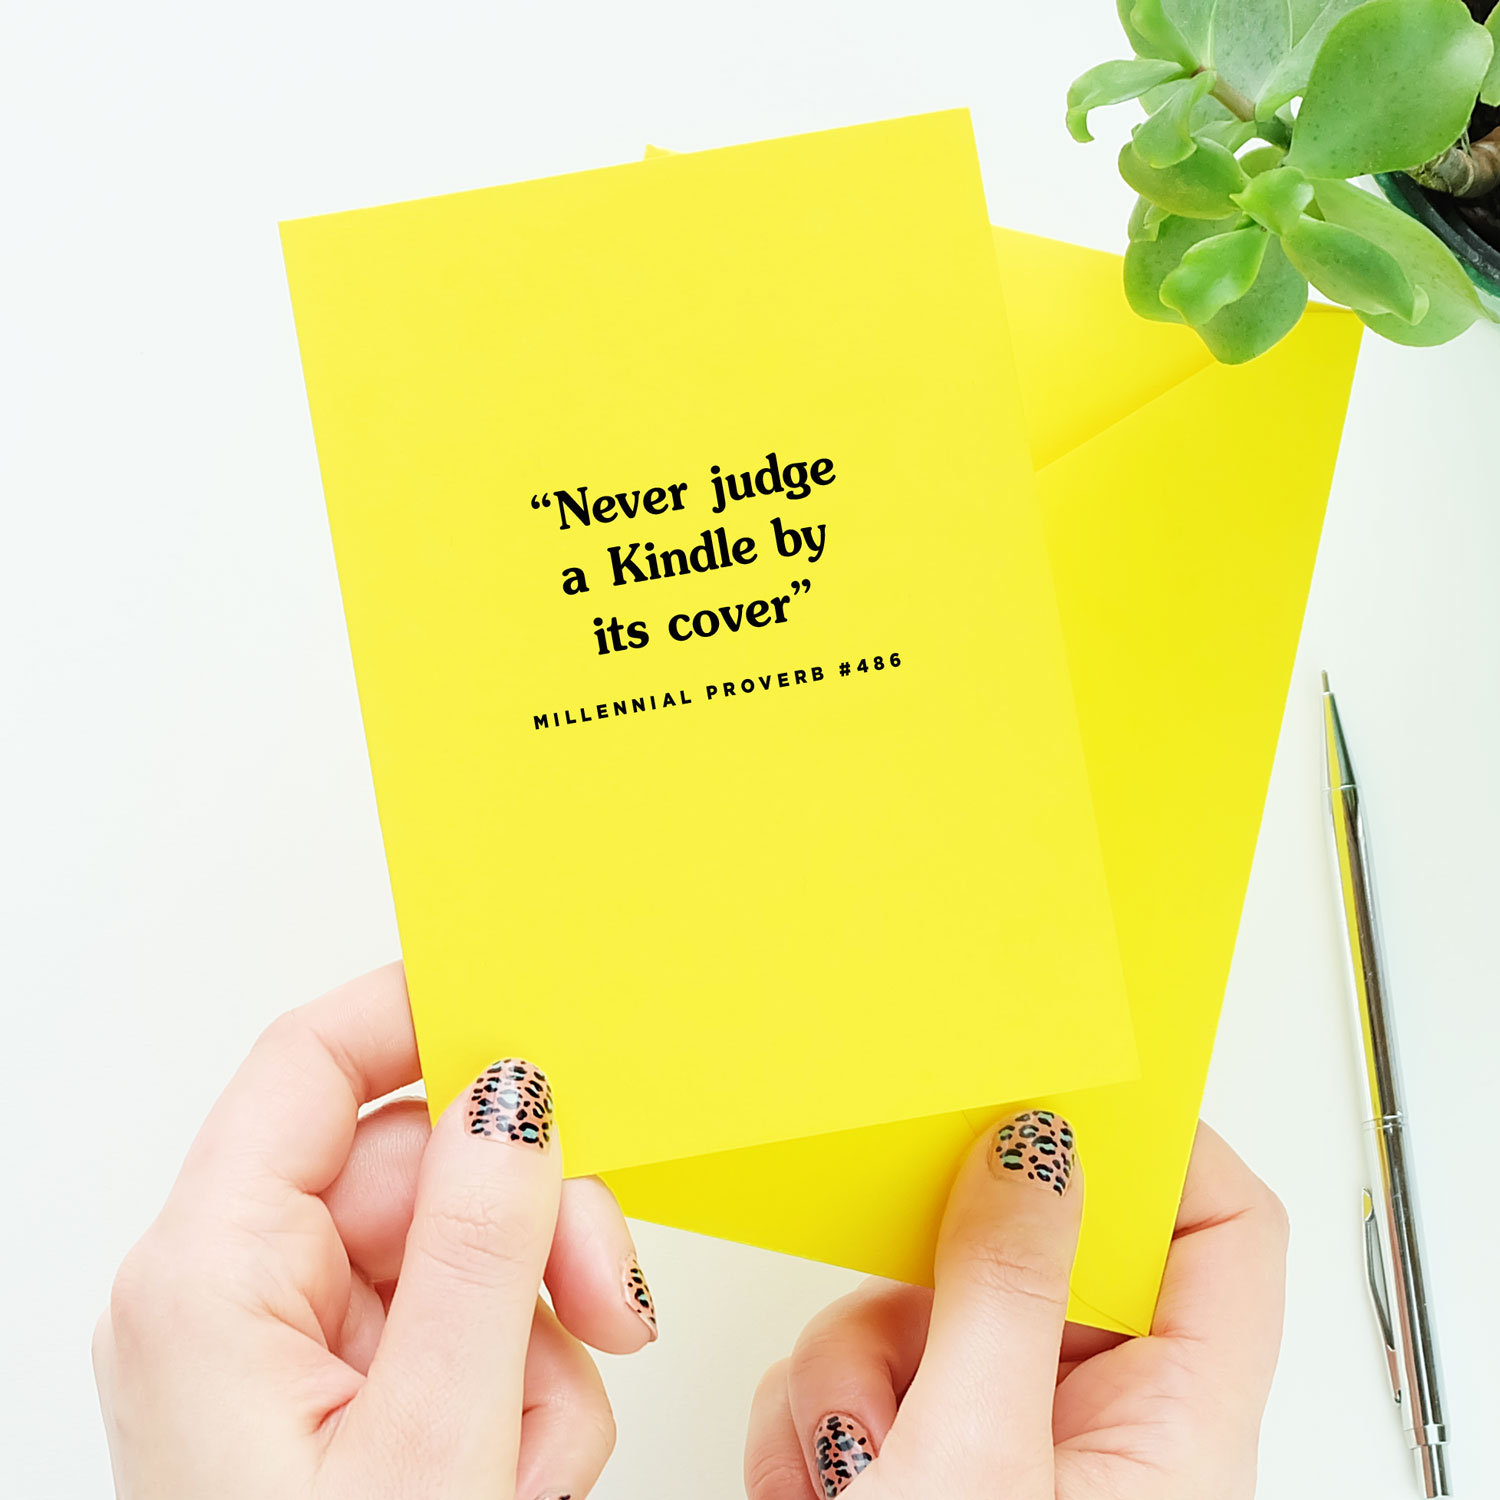 “Never judge
a Kindle by
its cover”
MILLENNIAL PROVERB #486